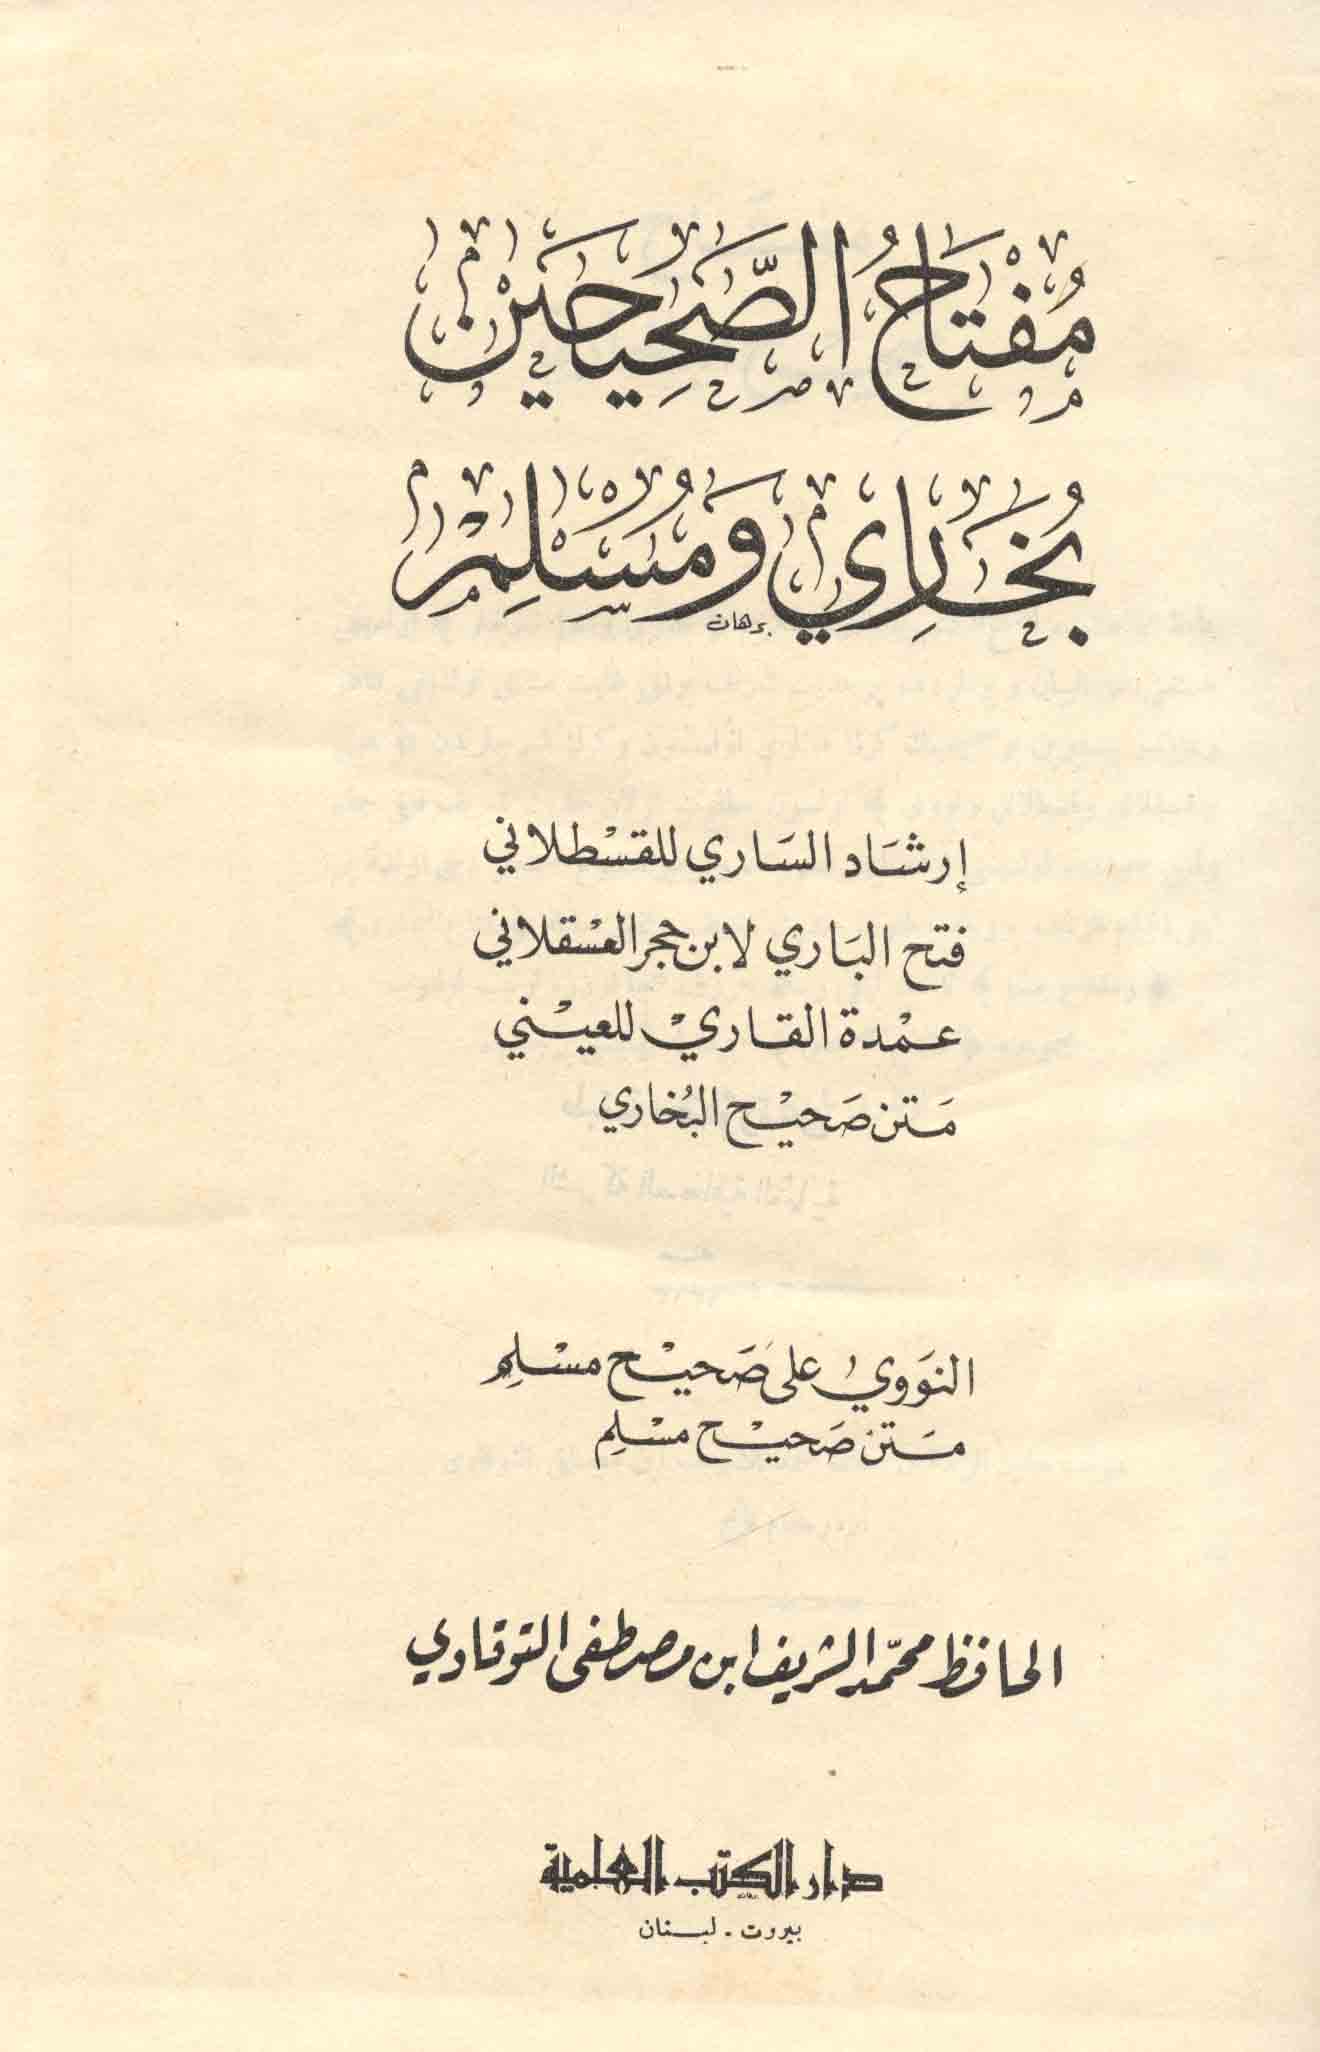 مُفْتَاحُ الصَّحِيحَيْن
بُخَارِي وَمُسْلِمْ
برهان
إرشَاد السَاري للقسْطلاني
فتح البَاري لابن حجر العسْقلاني
عمْدة القاريْ للعيْني
مَتن صَحيْح البُخاري
النوَوي على صَحيْح مسْلِم
مَتن صَحيْح مسْلِم
الحافظ محمّد الشريف ابن مصطفى التوقادي
دار الكتب العلمية
بيروت - لبنان